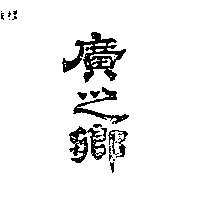 廣之鄉